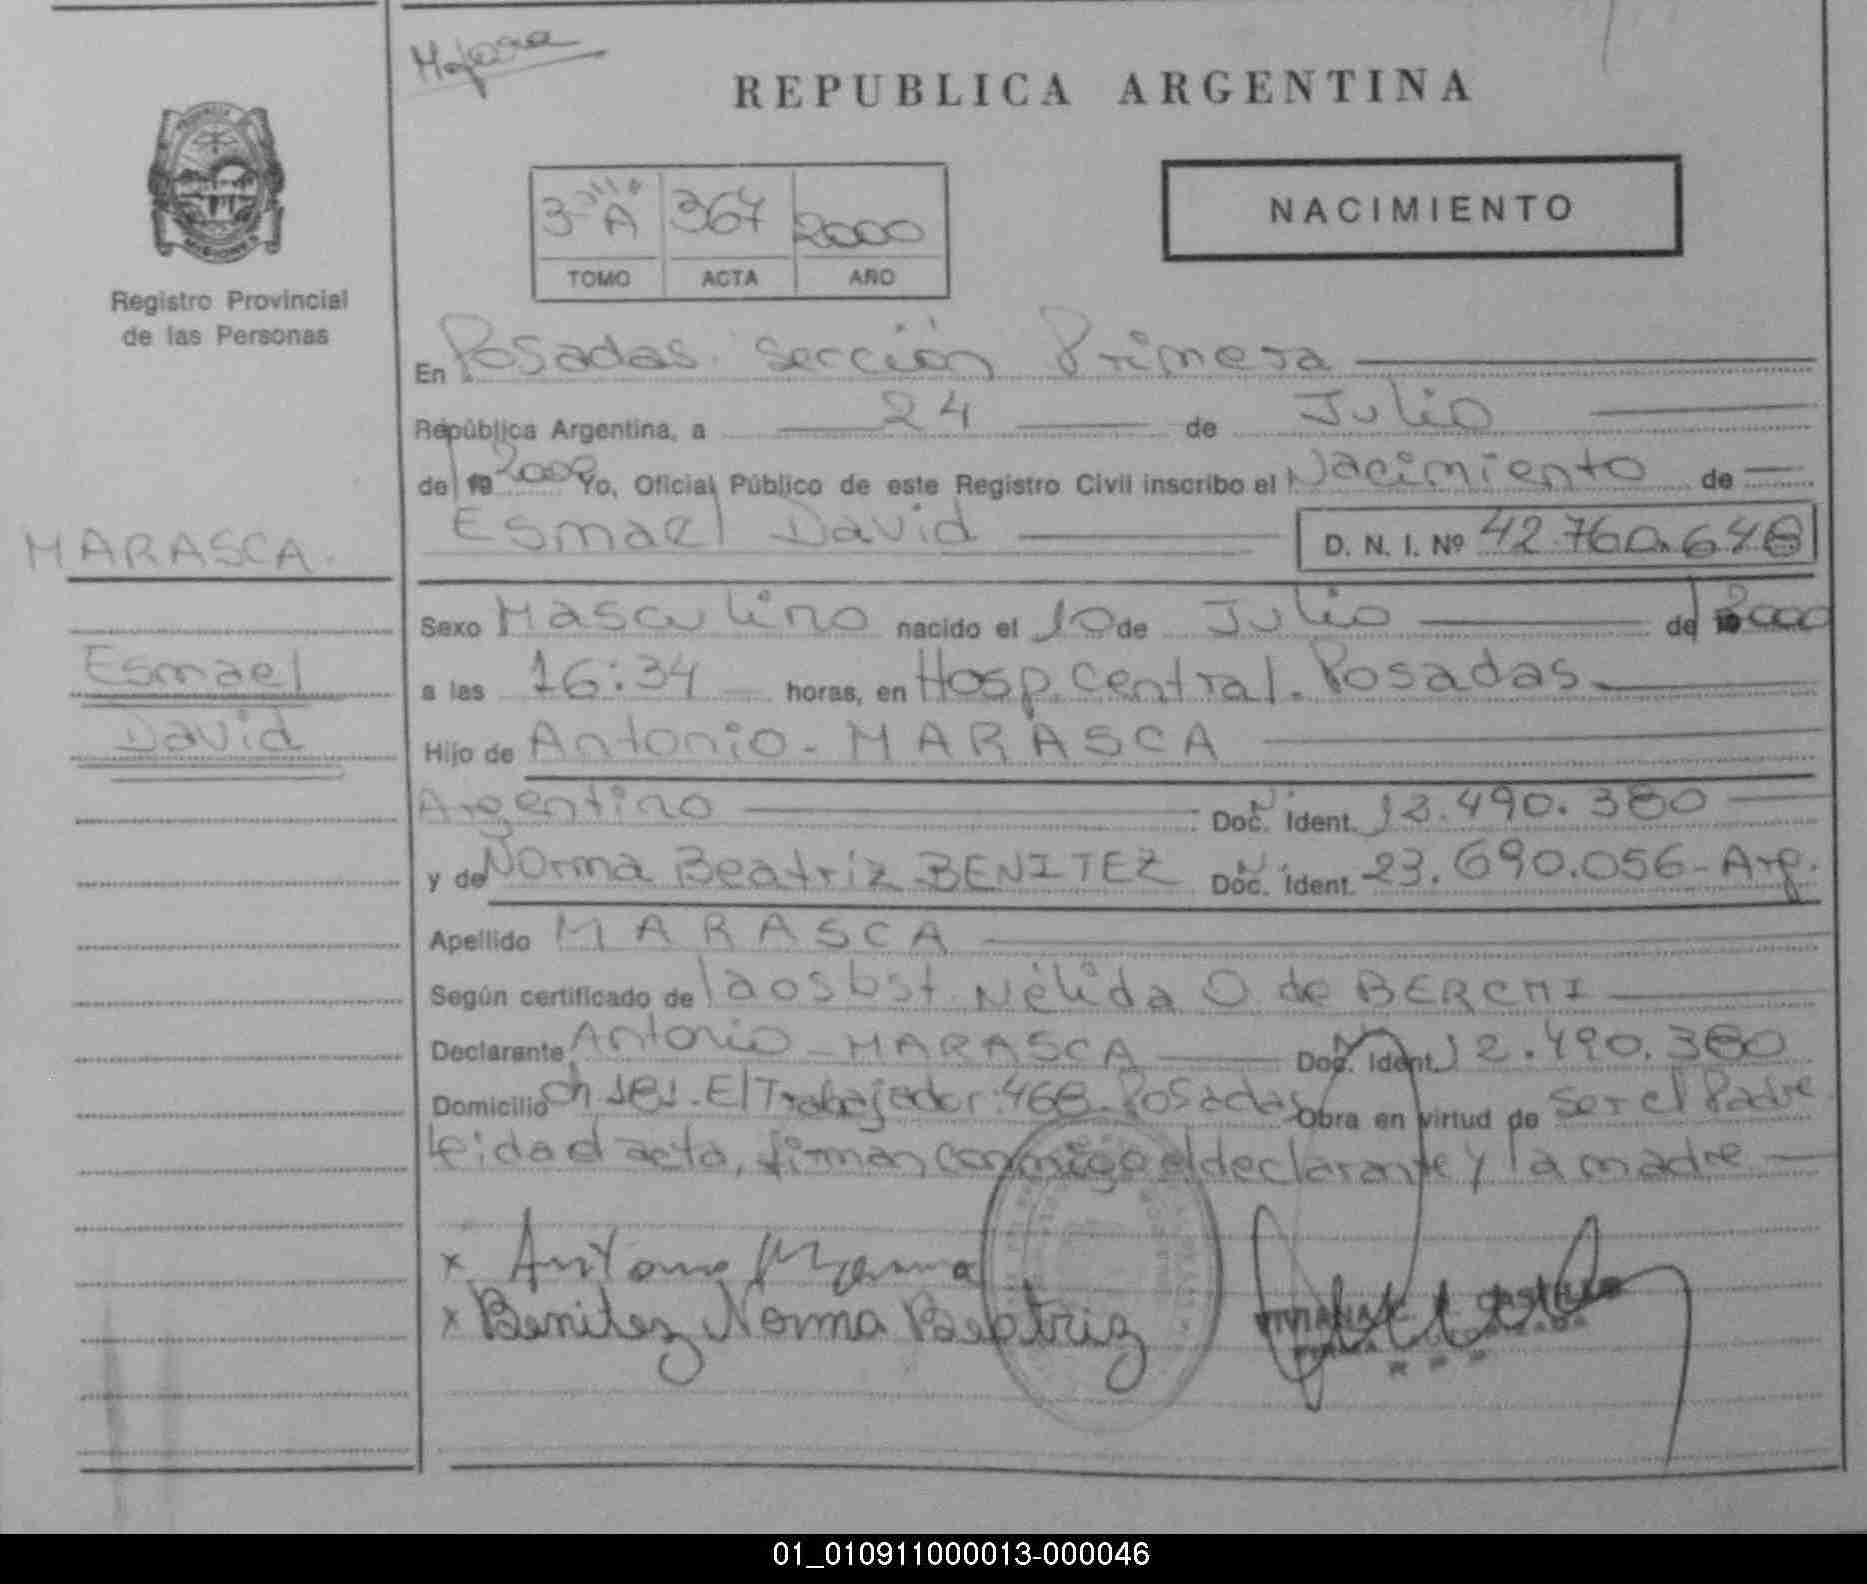 REPUBLICA ARGENTINA
3 A 367 2000
TOMO ACTA AÑO
NACIMIENTO
Registro Provincial
de las Personas
En Posadas Sección Primera
República Argentina, a 24 de Julio
de 19 2000 Yo, Oficial Público de este Registro Civil inscribo el Nacimiento de
MARASCA.
Esmael David D. N. I. Nº 42.760.648
Sexo Masculino nacido el 10 de Julio de 19 2000
Esmael
a las 16:34 horas, en Hosp. Central. Posadas
David
Hijo de Antonio - MARASCA
Argentino Doc. Ident. 12.490.380
y de Norma Beatriz BENITEZ Doc. Ident. 23.690.056 - Arg.
Apellido MARASCA
Según certificado de la osbst Nélida O de BERCHI
Declarante Antonio - MARASCA Doc. Ident. 12.490.380
Domicilio Ch 181. El Trabajador. 468 - Posadas Obra en virtud de ser el Padre
Leida el acta, firman conmigo el declarante y la madre
x Antonio
x Benitez Norma Beatriz
01_010911000013-000046